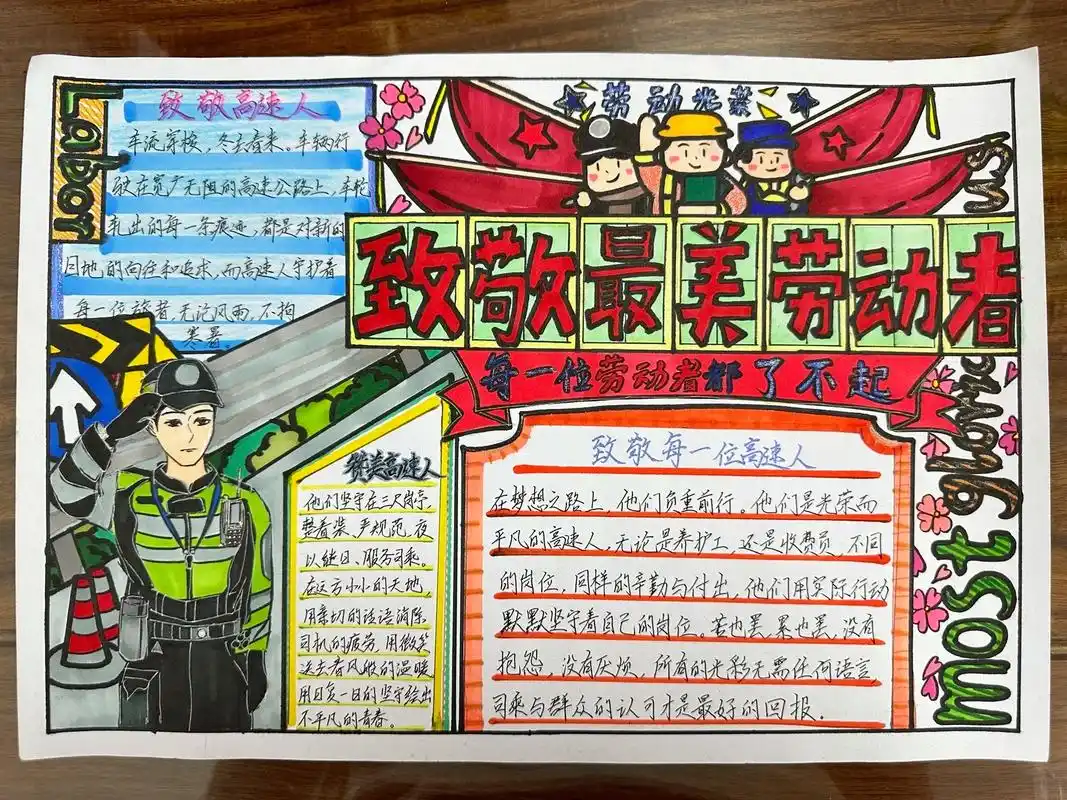 Labor
致敬高速人
车流穿梭，冬去春来。车辆行
驶在宽广无阻的高速公路上，车轮
轧出的每一条痕迹，都是对新的
目地的向往和追求，而高速人守护着
每一位旅者，无论风雨，不拘
寒暑。
劳动光荣
致敬最美劳动者
每一位劳动者都了不起
赞美高速人
他们坚守在三尺岗亭，
整着装、严规范，夜
以继日、服务司乘。
在这方小小的天地，
用亲切的话语消除
司机的疲劳，用微笑
送去春风般的温暖
用日复一日的坚守绘出
不平凡的青春。
致敬每一位高速人
在梦想之路上，他们负重前行。他们是光荣而
平凡的高速人，无论是养护工，还是收费员，不同
的岗位，同样的辛勤与付出，他们用实际行动
默默坚守着自己的岗位。苦也罢，累也罢，没有
抱怨，没有厌烦，所有的光彩无需任何语言
司乘与群众的认可才是最好的回报.
most glorious